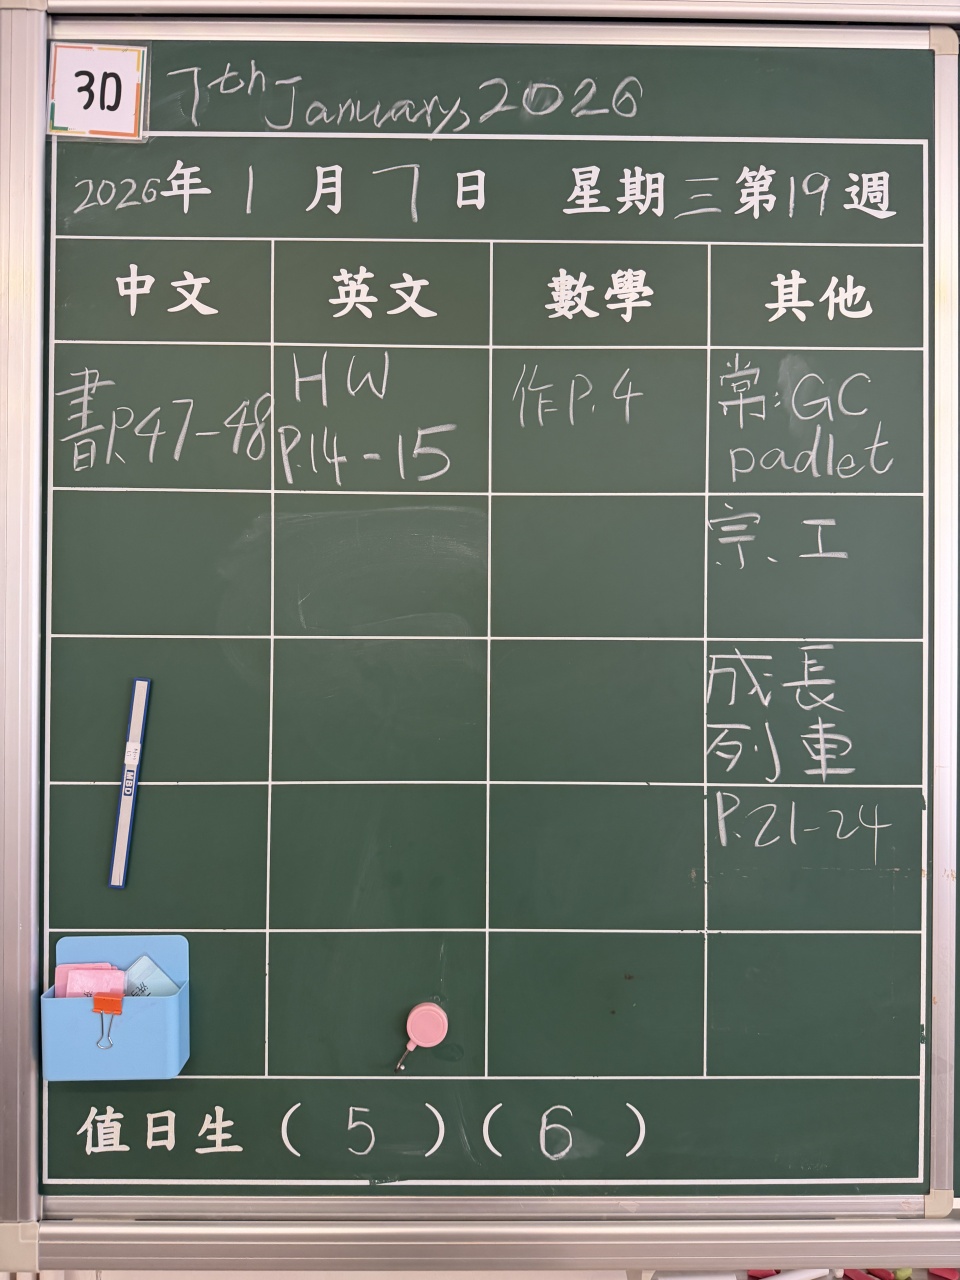 3D
7th January, 2026
2026年 1 月 7 日 星期三第19週
中文 英文 數學 其他
書P.47-48
HW
P.14-15
作P.4
常:GC
padlet
宗、工
成長
列車
P.21-24
MBD
值日生 ( 5 ) ( 6 )